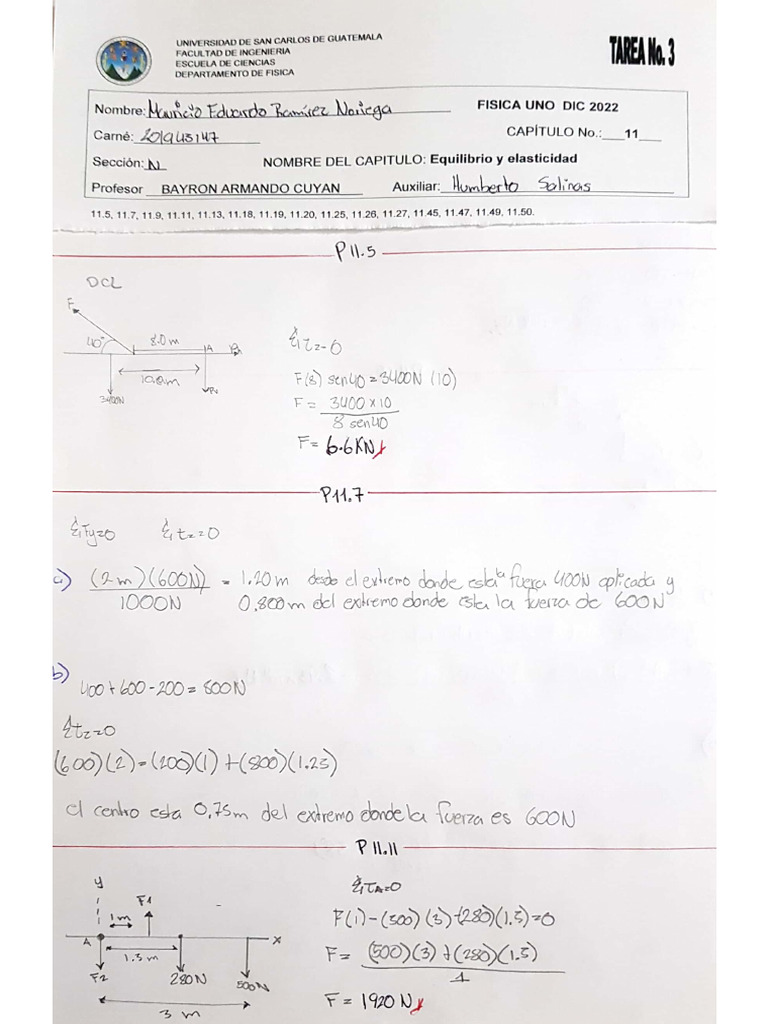 UNIVERSIDAD DE SAN CARLOS DE GUATEMALA
FACULTAD DE INGENIERIA
ESCUELA DE CIENCIAS
DEPARTAMENTO DE FISICA
TAREA No. 3
Nombre: Mauricio Eduardo Ramírez Noriega
FISICA UNO DIC 2022
Carné: 201943147
CAPÍTULO No.: 11
Sección: N
NOMBRE DEL CAPITULO: Equilibrio y elasticidad
Profesor BAYRON ARMANDO CUYAN
Auxiliar: Humberto Salinas
11.5, 11.7, 11.9, 11.11, 11.13, 11.18, 11.19, 11.20, 11.25, 11.26, 11.27, 11.45, 11.47, 11.49, 11.50.
P11.5
DCL
F
40°
8.0m
A
10.0m
3400N
Στz=0
F(8) sen40 = 3400N (10)
F = 3400 x 10
8 sen40
F = 6.6KN
P11.7
ΣFy=0 Στz=0
a) (2m)(600N) = 1.20m desde el extremo donde esta la fuerza 400N aplicada y
1000N 0.800m del extremo donde esta la fuerza de 600N
b)
400+600-200 = 800N
Στz=0
(600)(2)=(200)(1)+(800)(1.25)
el centro esta 0.75m del extremo donde la fuerza es 600N
P11.11
y
F1
1m
A
x
1.5m
F2
280N
500N
3 m
ΣτA=0
F(1)-(500)(3)-(280)(1.5)=0
F = (500)(3)+(280)(1.5)
1
F = 1920N